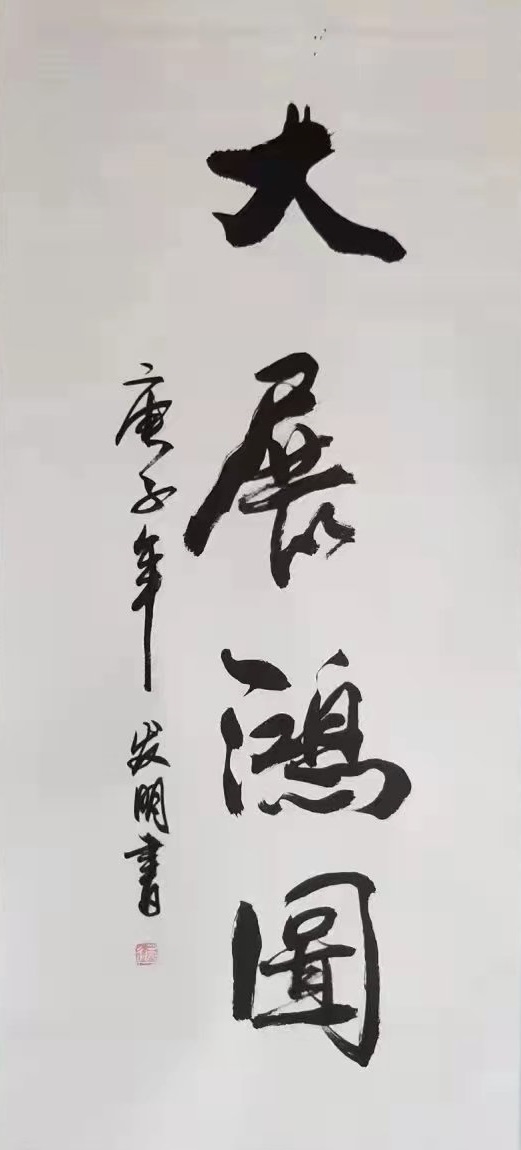 大展鸿圖
庚子年 发明書